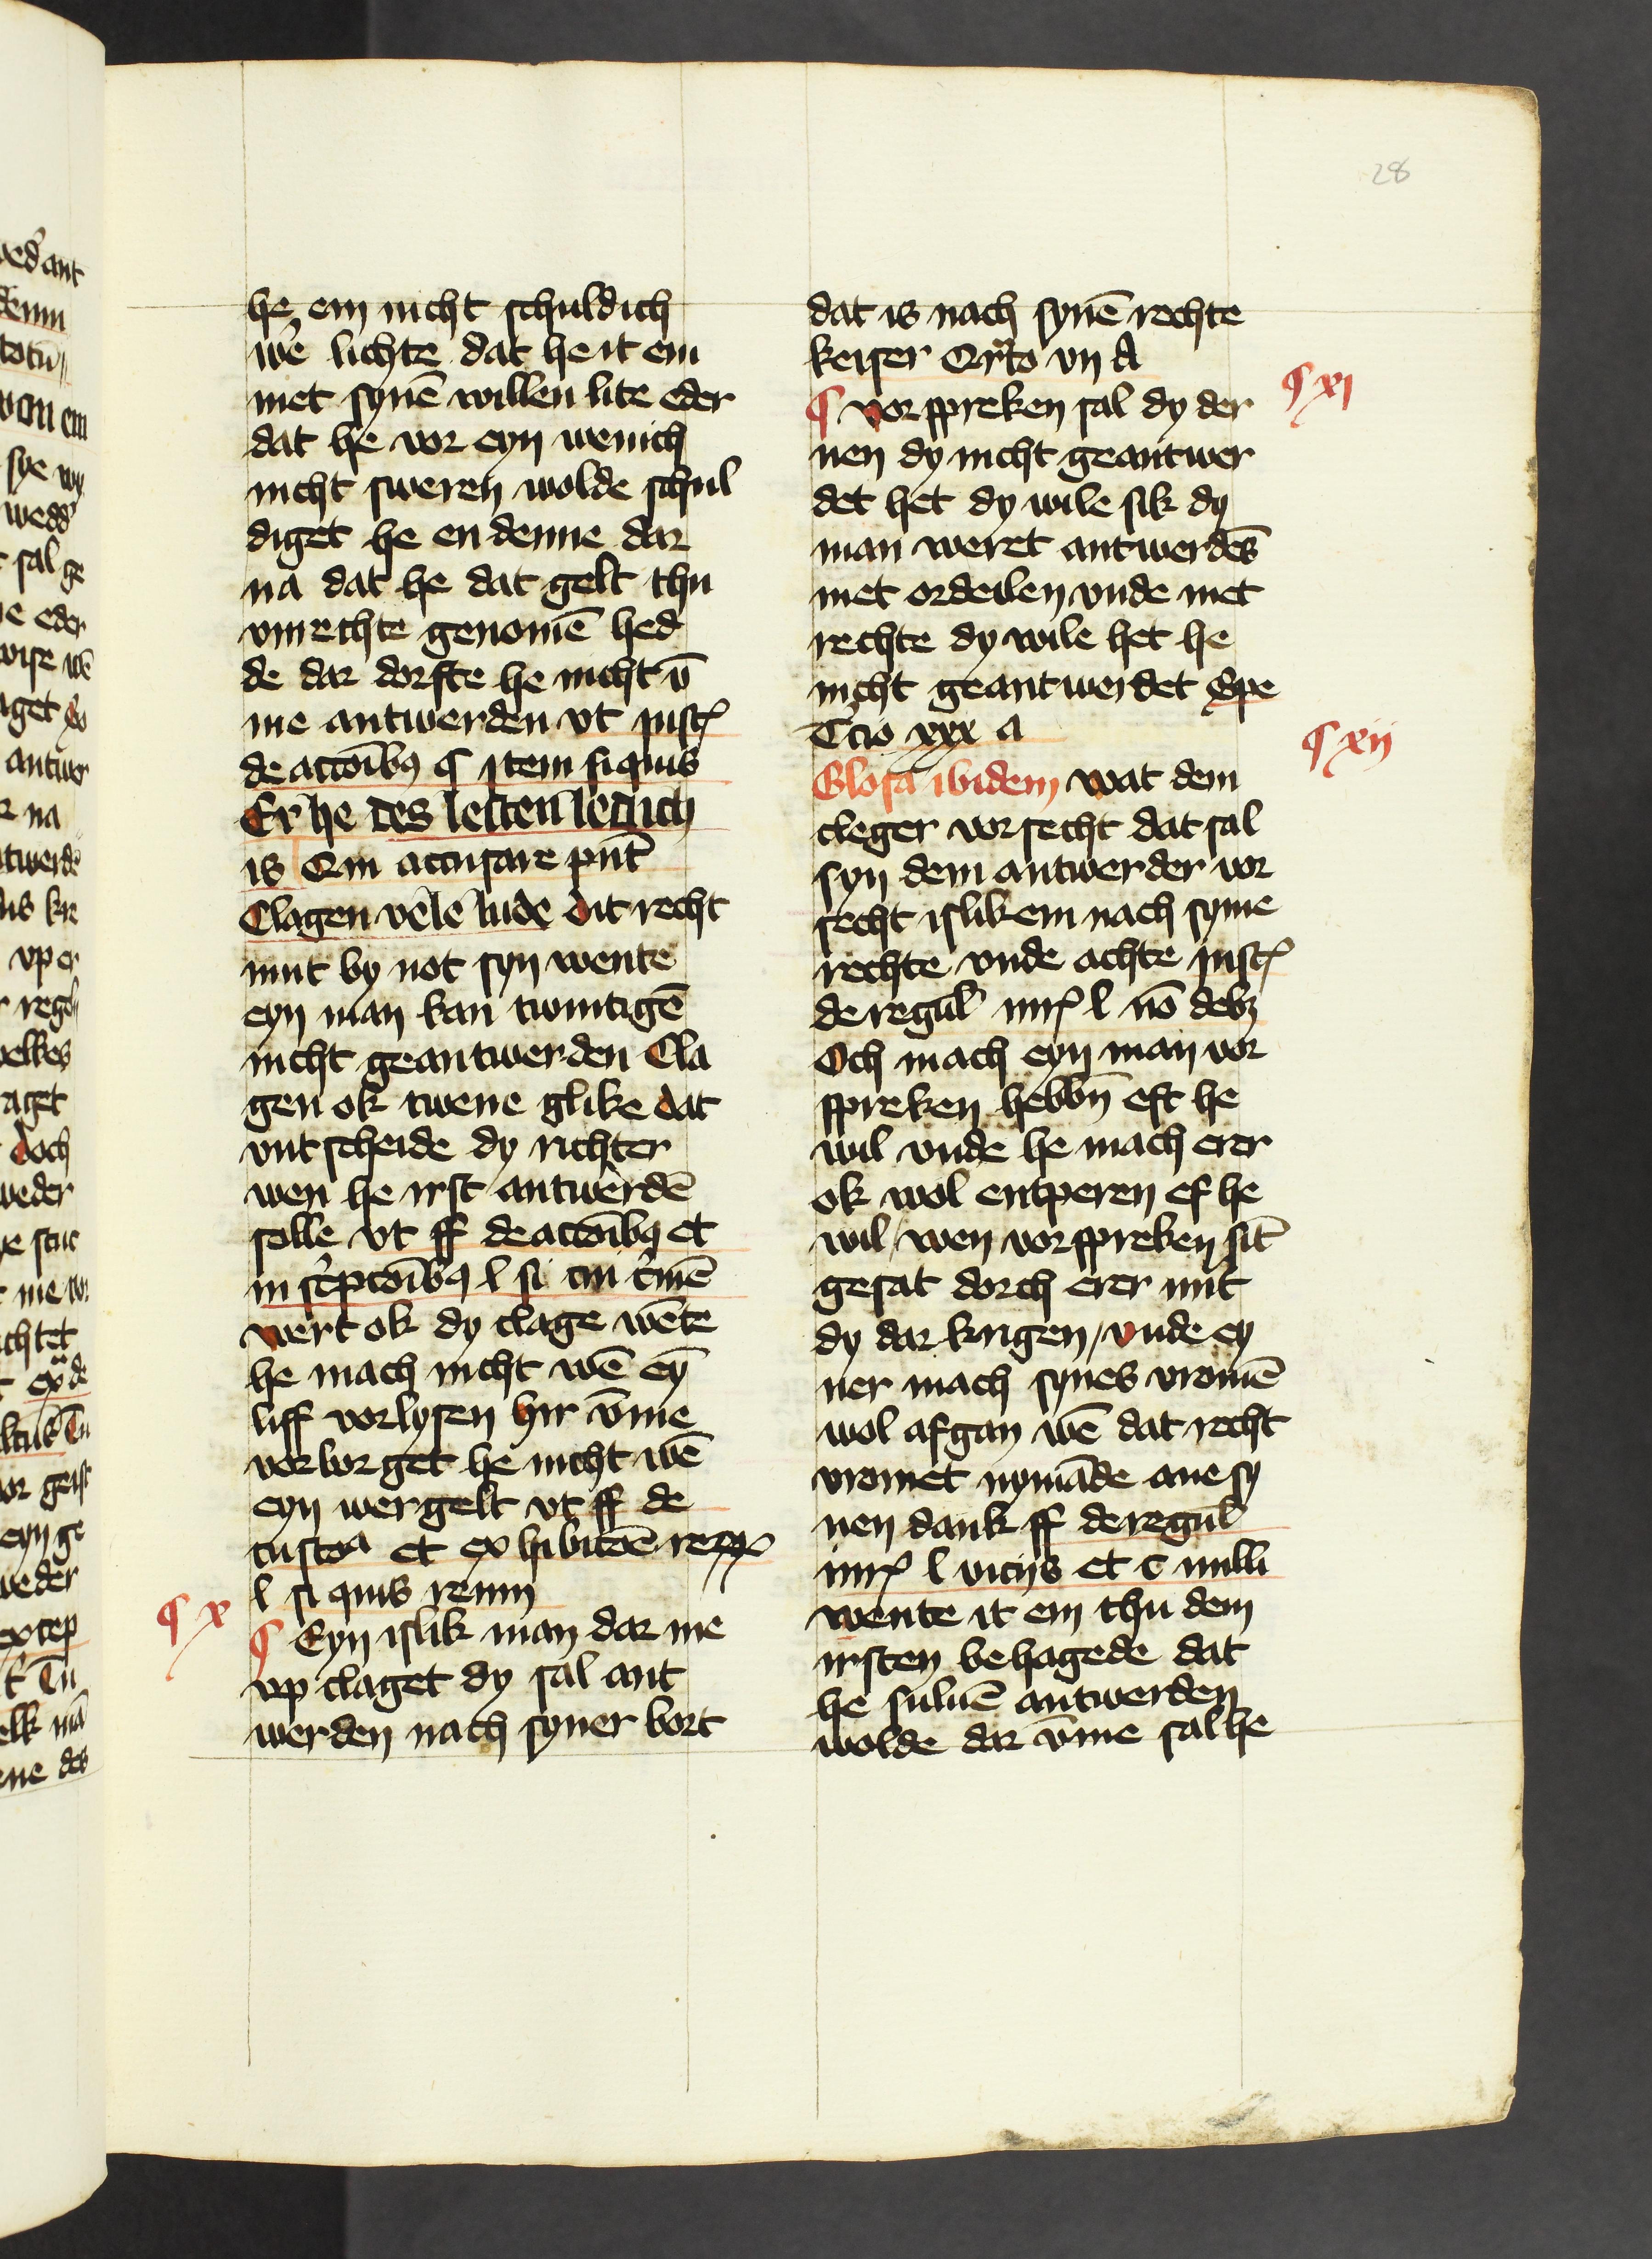 28
he em nicht schuldich
wē lichte dat he it em
met synē willen lite eder
dat he vor eyn wenich
nicht sweren wolde schul
diget he en denne dar
na dat he dat gelt thu
vnrechte genomē hed
de dar dorfte he nicht v̄
me antwerden vt inst
de actōibꝯ ¶ item si quis
Er he des lesten ledich
is Qm accusare pn̄t
Clagen vele lude dit recht
mut by not syn wente
eyn man kan twintigē
nicht geantwerden Cla
gen ok twene glike dat
vntscheide dy richter
wen he irst antwerdē
solle vt ff de actōibꝯ et
in sc̓pcōibꝯ l si cui c̓mē
wert ok dy clage wēte
he mach nicht wē eyn̄
liff vorlysen hir v̄me
vorborget he nicht wē
eyn wergelt vt ff de
custoa et exhibitōē reꝝ
l si quis reum
¶ x
¶ Eyn islik man dar me
vp claget dy sal ant
werden nach syner bort
dat is nach synē rechte
keiser Qr̄to vij A
¶ xi
¶ vorspreken sal dy der
nen dy nicht geantwer
det het dy wile sik dy
man weret antwerdēs
met ordeilen vnde met
rechte dy wile het he
nicht geantwerdet Spe
Tcio xxx a
¶ xii
Glosa ibidem wat dem
cleger vorsecht dat sal
syn dem antwerder vor
secht islikem nach syme
rechte vnde achte inst
de regul̄ iur l nō debꝫ
Och mach eyn man vor
spreken hebbn̄ eft he
wil vnde he mach erer
ok wol entperen ef he
wil / wen vorspreken sīt
gesat dorch erer nut
dy dar krigen / vnde ey
ner mach synes vromē
wol afgan wē dat recht
vromet nymāde ane sy
nen dank ff de regul̄
iur l inuitis et c nulli
wente it em thu dem
irsten behagede dat
he suluē antwerden
wolde dar v̄me sal he